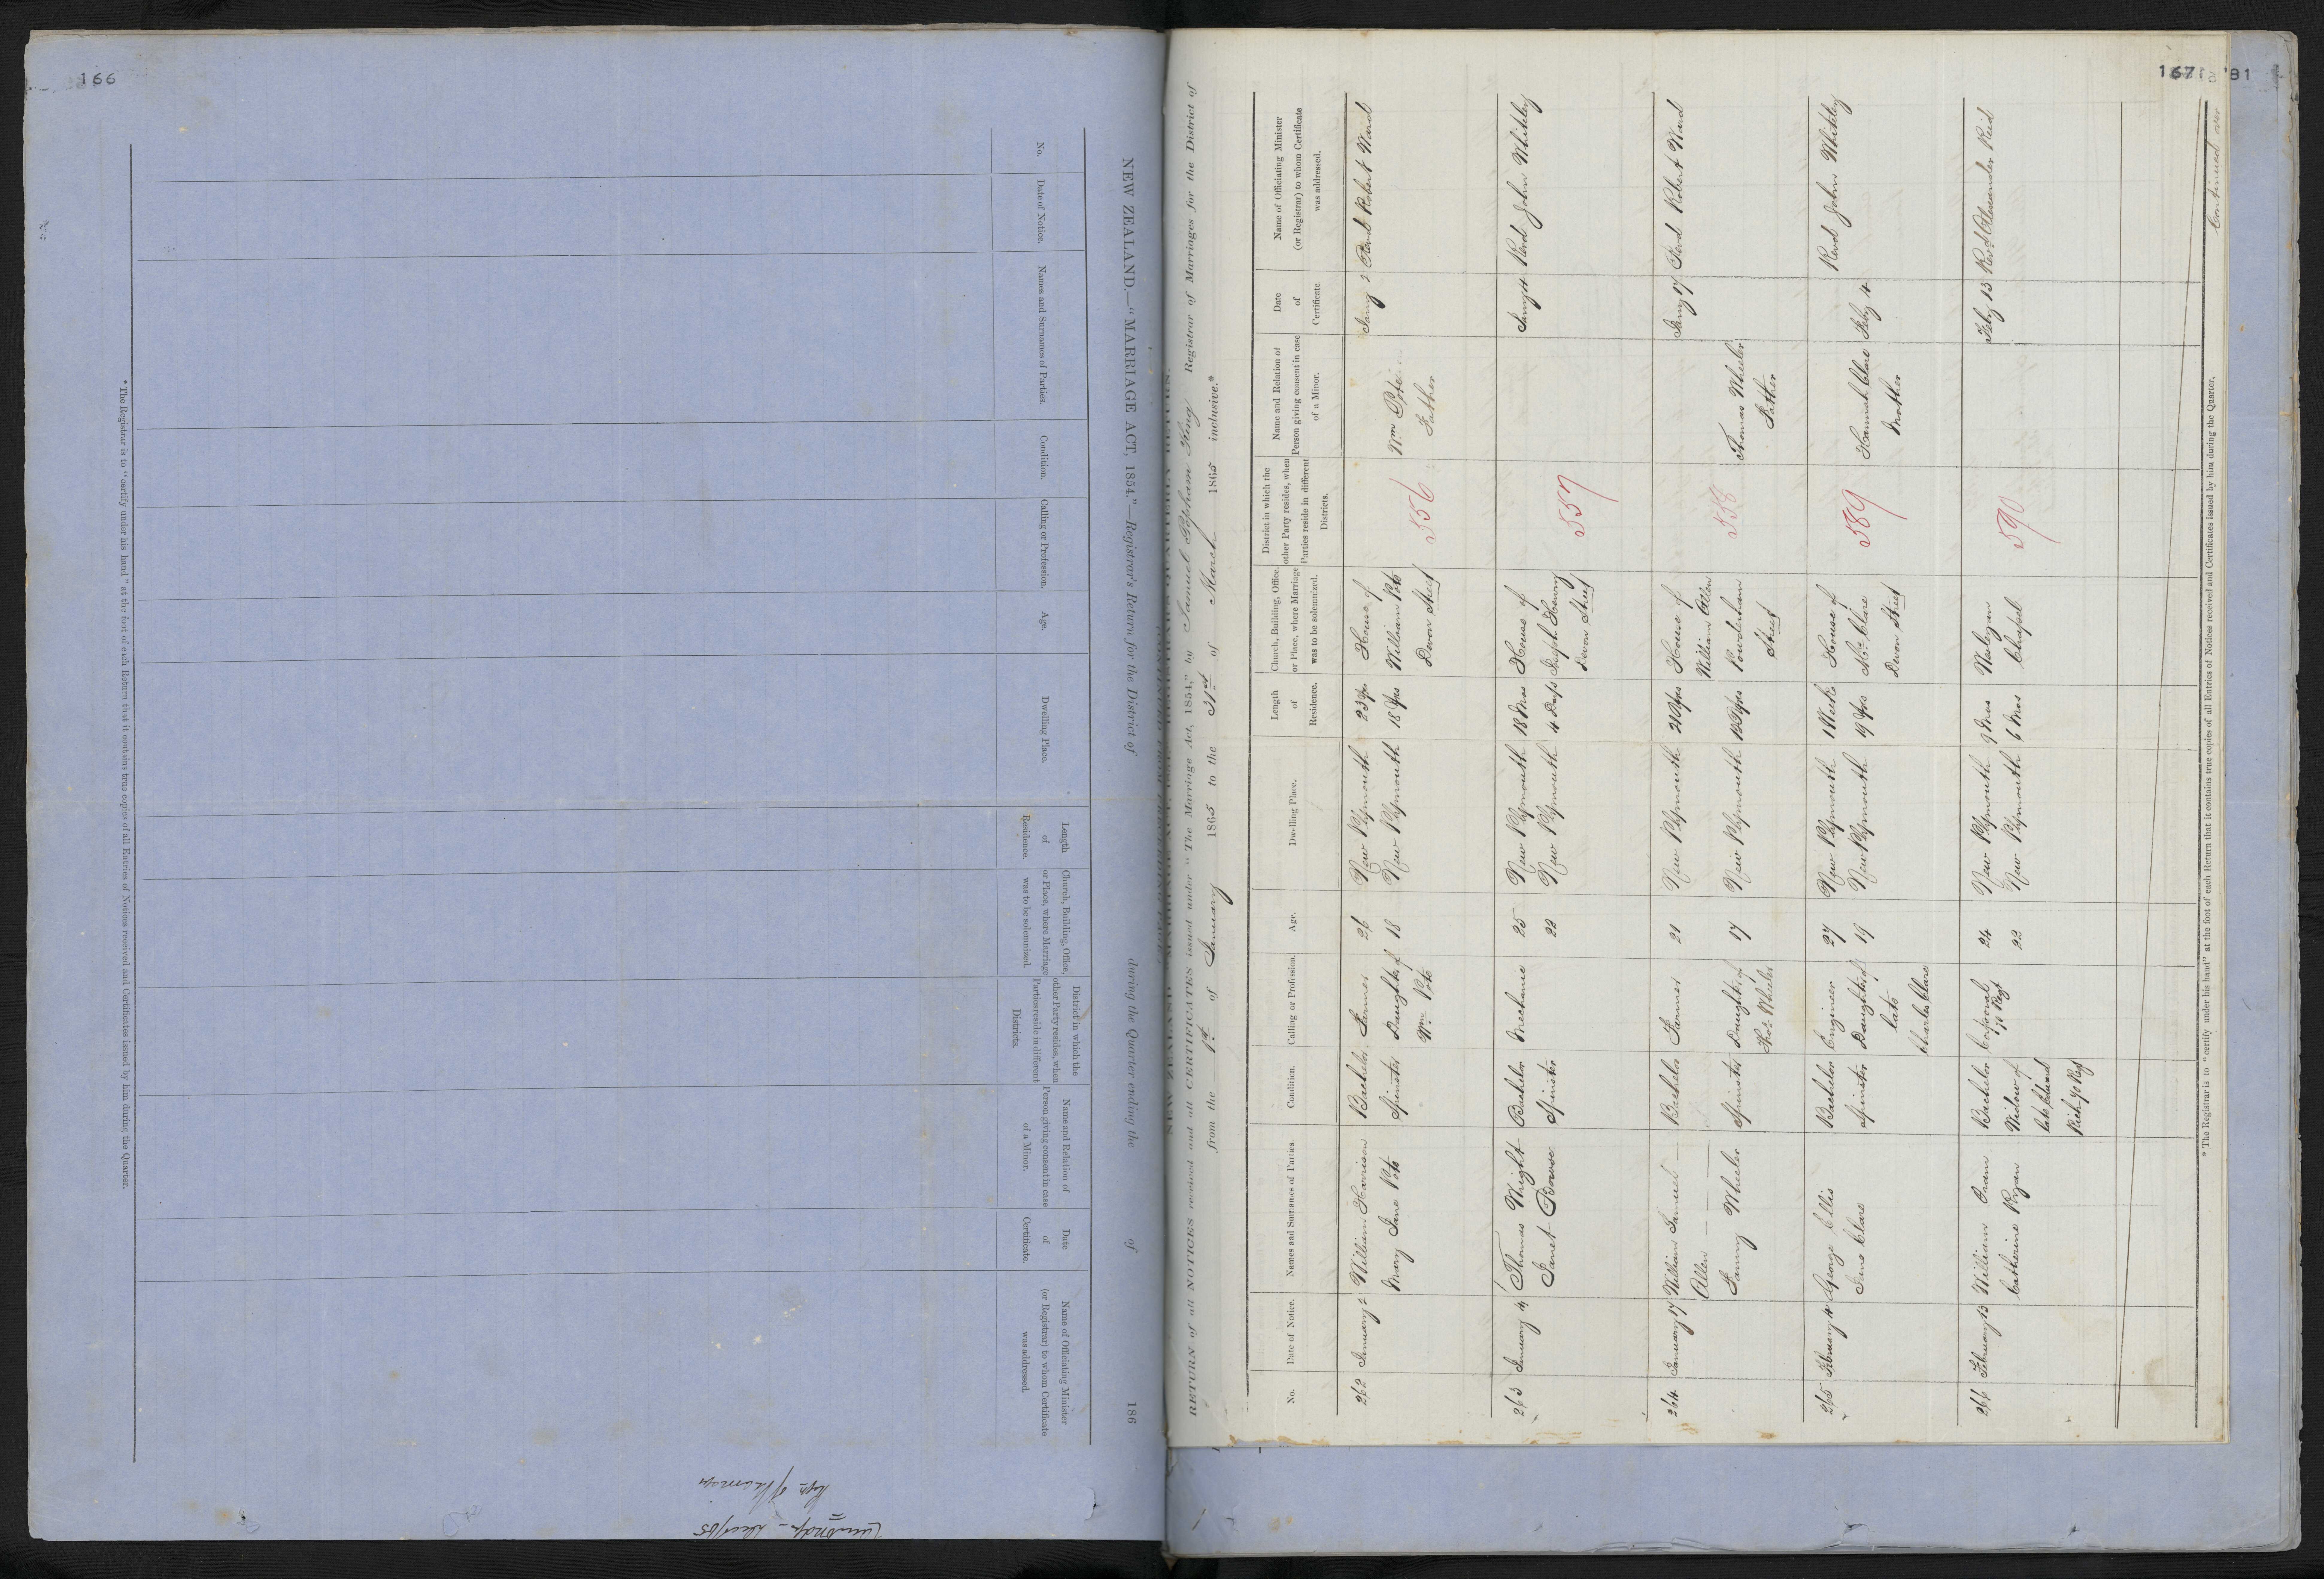 166
NEW ZEALAND.—"MARRIAGE ACT, 1854."—Registrar's Return for the District of during the Quarter ending the of 186
No.
Date of Notice.
Names and Surnames of Parties.
Condition.
Calling or Profession.
Age.
Dwelling Place.
Length
of
Residence.
Church, Building, Office,
or Place, where Marriage
was to be solemnized.
District in which the
other Party resides, when
Parties reside in different
Districts.
Name and Relation of
Person giving consent in case
of a Minor.
Date
of
Certificate.
Name of Officiating Minister
(or Registrar) to whom Certificate
was addressed.
*The Registrar is to "certify under his hand" at the foot of each Return that it contains true copies of all Entries of Notices received and Certificates issued by him during the Quarter.
167
81
RETURN of all NOTICES received and all CERTIFICATES issued under "The Marriage Act, 1854," by Samuel Popham King Registrar of Marriages for the District of
from the 1st of January 1865 to the 31st of March 1865 inclusive.*
No.
Date of Notice.
Names and Surnames of Parties.
Condition.
Calling or Profession.
Age.
Dwelling Place.
Length
of
Residence.
Church, Building, Office,
or Place, where Marriage
was to be solemnized.
District in which the
other Party resides, when
Parties reside in different
Districts.
Name and Relation of
Person giving consent in case
of a Minor.
Date
of
Certificate.
Name of Officiating Minister
(or Registrar) to whom Certificate
was addressed.
262 January 2 William Harrison Bachelor Farmer 26 New Plymouth 23 Yrs House of Jany 2 Revd Robert Ward
Mary Jane Pote Spinster Daughter of 18 New Plymouth 18 Yrs William Pote Wm Pote
Wm Pote Devon Street 556 Father
263 January 4 Thomas Wright Bachelor Mechanic 25 New Plymouth 18 Mos House of Jany 4 Revd John Whiteley
Janet Bowse Spinster 22 New Plymouth 4 Days Joseph Henry
Devon Street 557
264 January 17 William Samuel Bachelor Farmer 21 New Plymouth 21 Yrs House of Jany 17 Revd Robert Ward
Allen William Allen
Fanny Wheeler Spinster Daughter of 17 New Plymouth Powderham 558 Thomas Wheeler
Thos Wheeler Street Father
265 February 4 George Ellis Bachelor Engineer 27 New Plymouth House of Feby 4 Revd John Whiteley
Jane Clare Spinster Daughter of 19 New Plymouth 19 Yrs Mrs Clare 589 Hannah Clare
late Devon Street Mother
Charles Clare
266 February 13 William Oram Bachelor Corporal 24 New Plymouth 9 Mos Wesleyan Feby 13 Revd Alexander Reid
70 Regt
Catherine Ryan Widow of 22 New Plymouth 6 Mos Chapel 590
late Edward
70 Regt
Continued over
* The Registrar is to "certify under his hand" at the foot of each Return that it contains true copies of all Entries of Notices received and Certificates issued by him during the Quarter.